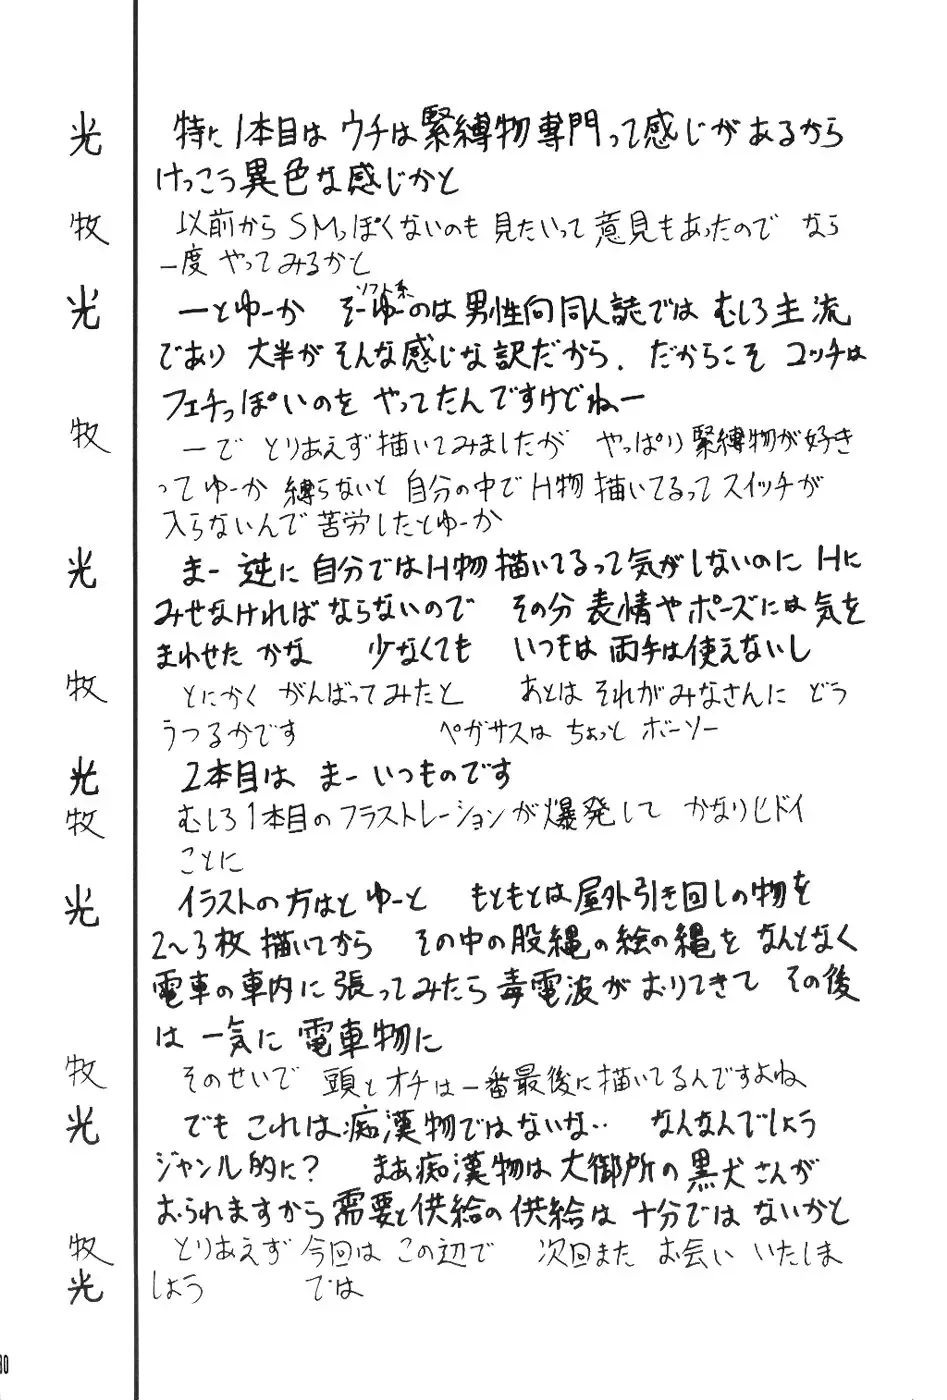 光 特に1本目は ウチは緊縛物専門って感じがあるから
けっこう異色な感じかと
牧 以前から SMっぽくないのも 見たいって 意見もあったので なら
一度 やってみるかと
ソフト系
光 ーとゆーか そーゆーのは男性向同人誌では むしろ主流
であり 大半が そんな感じな訳だから. だからこそ コッチは
フェチっぽいのを やってたんですけどねー
牧 ーで とりあえず描いてみましたが やっぱり緊縛物が好き
ってゆーか 縛らないと 自分の中で H物描いてるって スイッチが
入らないんで 苦労したとゆーか
光 まー 逆に自分ではH物描いてるって気がしないのに Hに
みせなければならないので その分 表情やポーズには気を
まわせた かな 少なくても いつもは両手は使えないし
牧 とにかく がんばってみたと あとは それがみなさんに どう
うつるかです ペガサスは ちょっと ボーソー
光 2本目は まー いつものです
牧 むしろ1本目のフラストレーションが爆発して かなりヒドイ
ことに
光 イラストの方はと ゆーと もともとは屋外引き回しの物を
2〜3枚描いてから その中の股縄の絵の縄を なんとなく
電車の車内に張ってみたら毒電波がおりてきて その後
は 一気に 電車物に
牧 そのせいで 頭とオチは一番最後に描いてるんですよね
光 でも これは痴漢物ではないな‥ なんなんでしょう
ジャンル的に? まぁ痴漢物は大御所の黒犬さんが
おられますから需要と供給の供給は十分ではないかと
牧 とりあえず 今回は この辺で 次回また お会い いたしま
光 しょう では
30